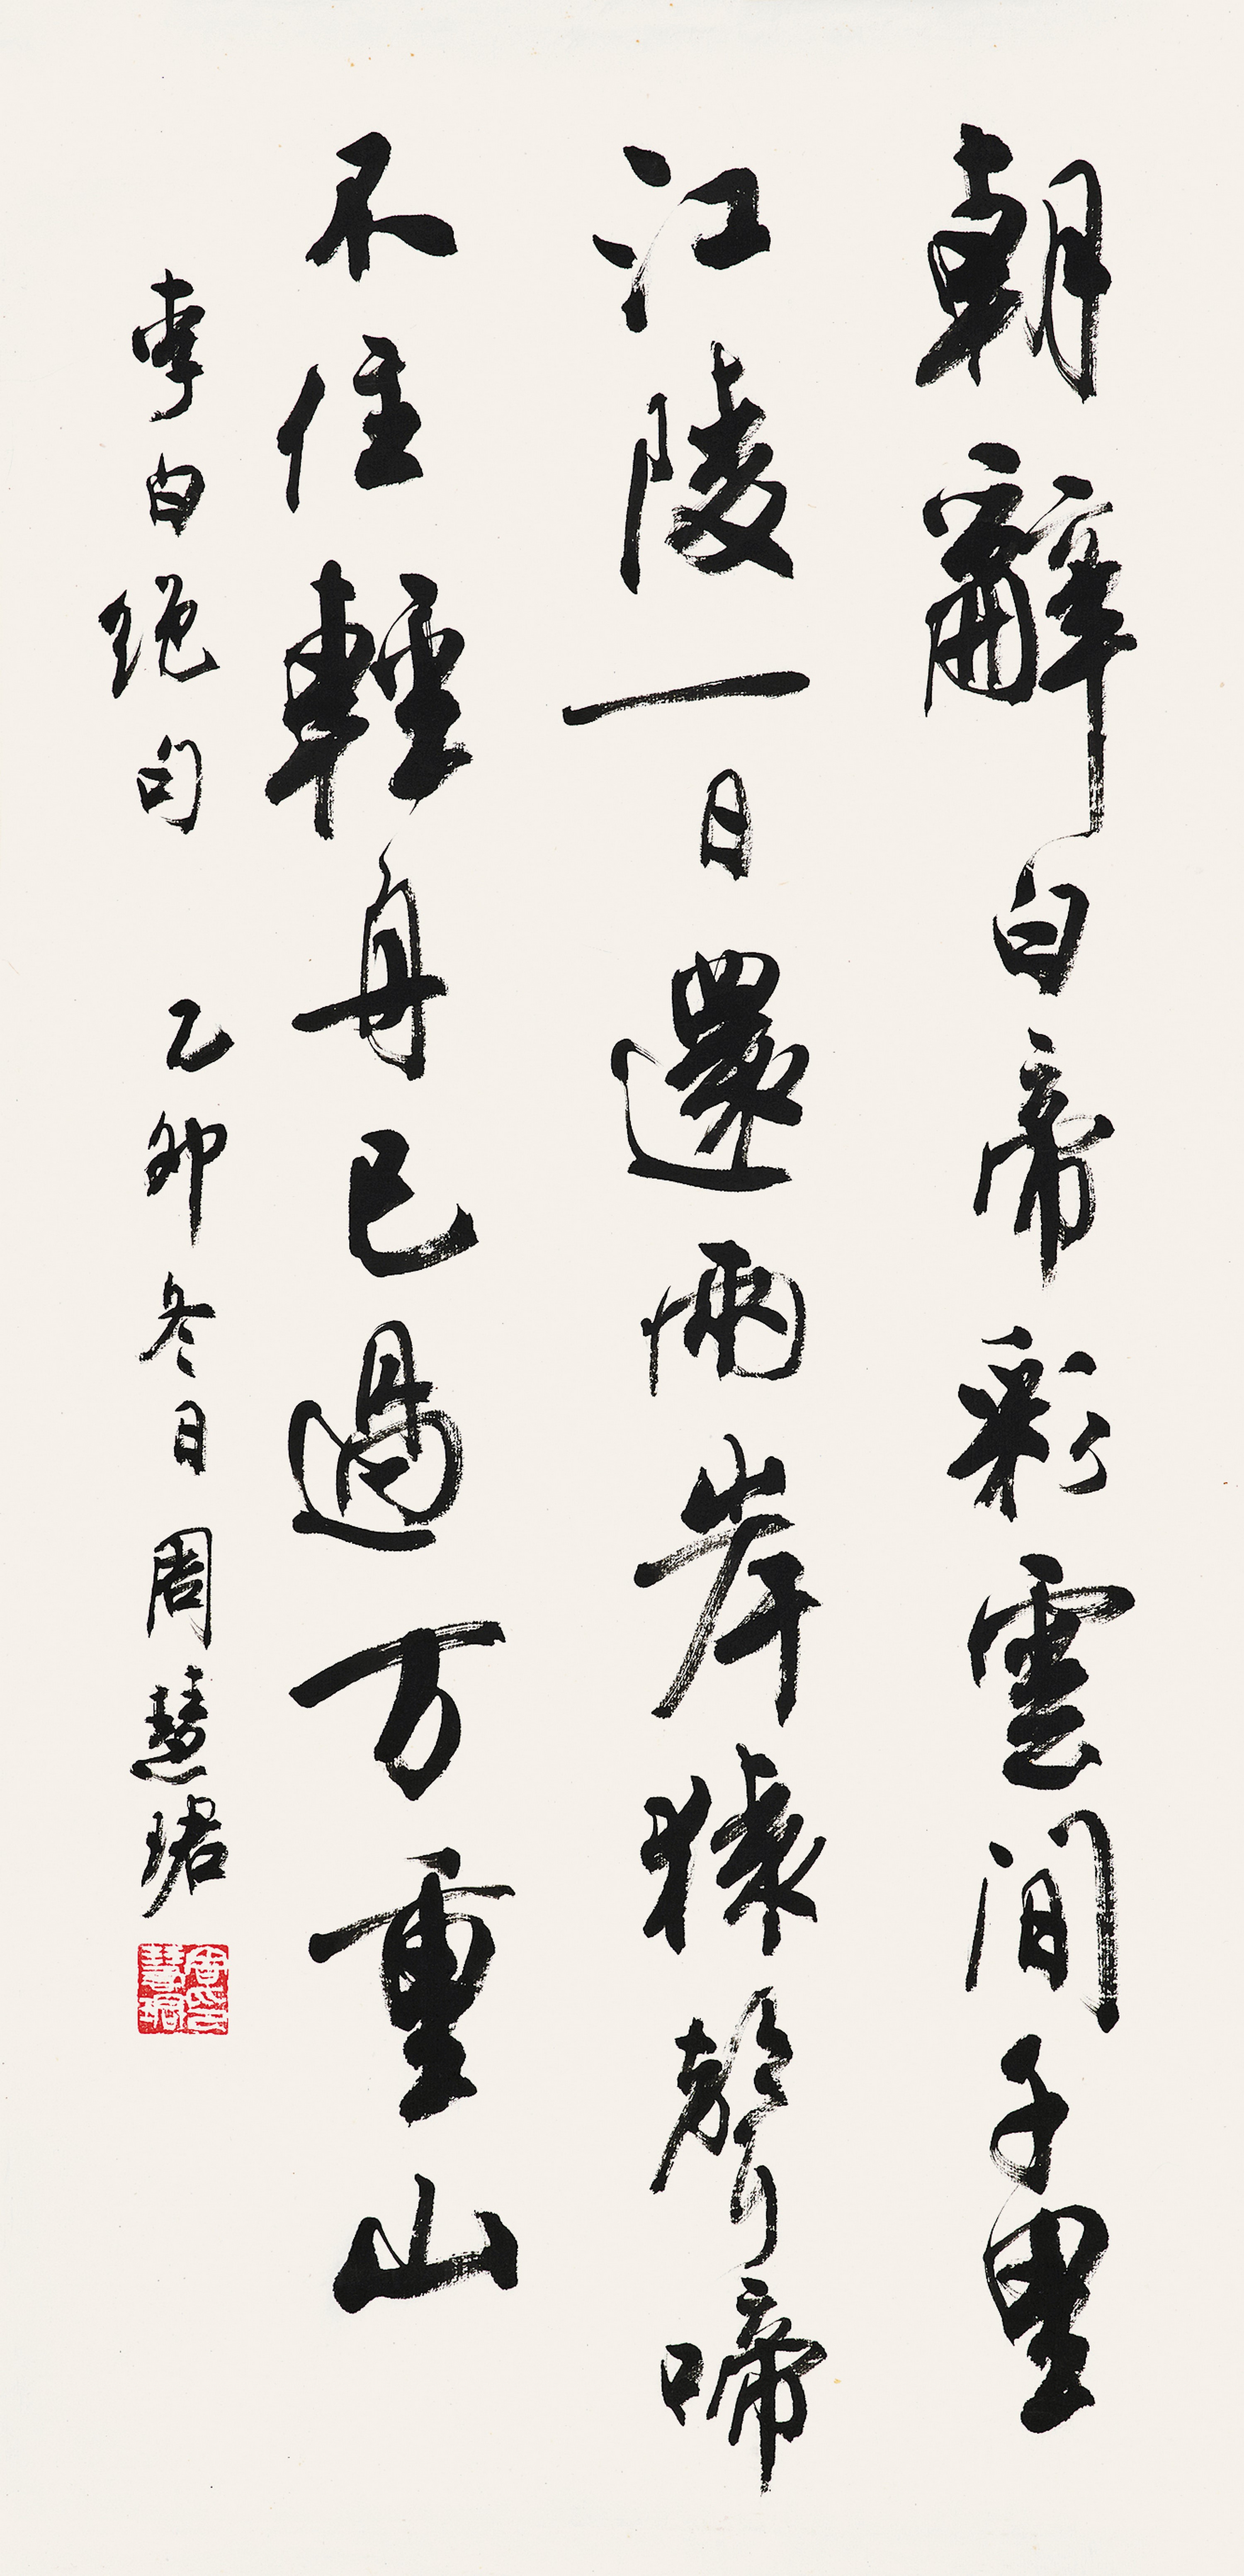 朝辭白帝彩雲間千里
江陵一日還兩岸猿聲啼
不住輕舟已過万重山
李白绝句 乙卯冬日周慧珺
周慧珺印